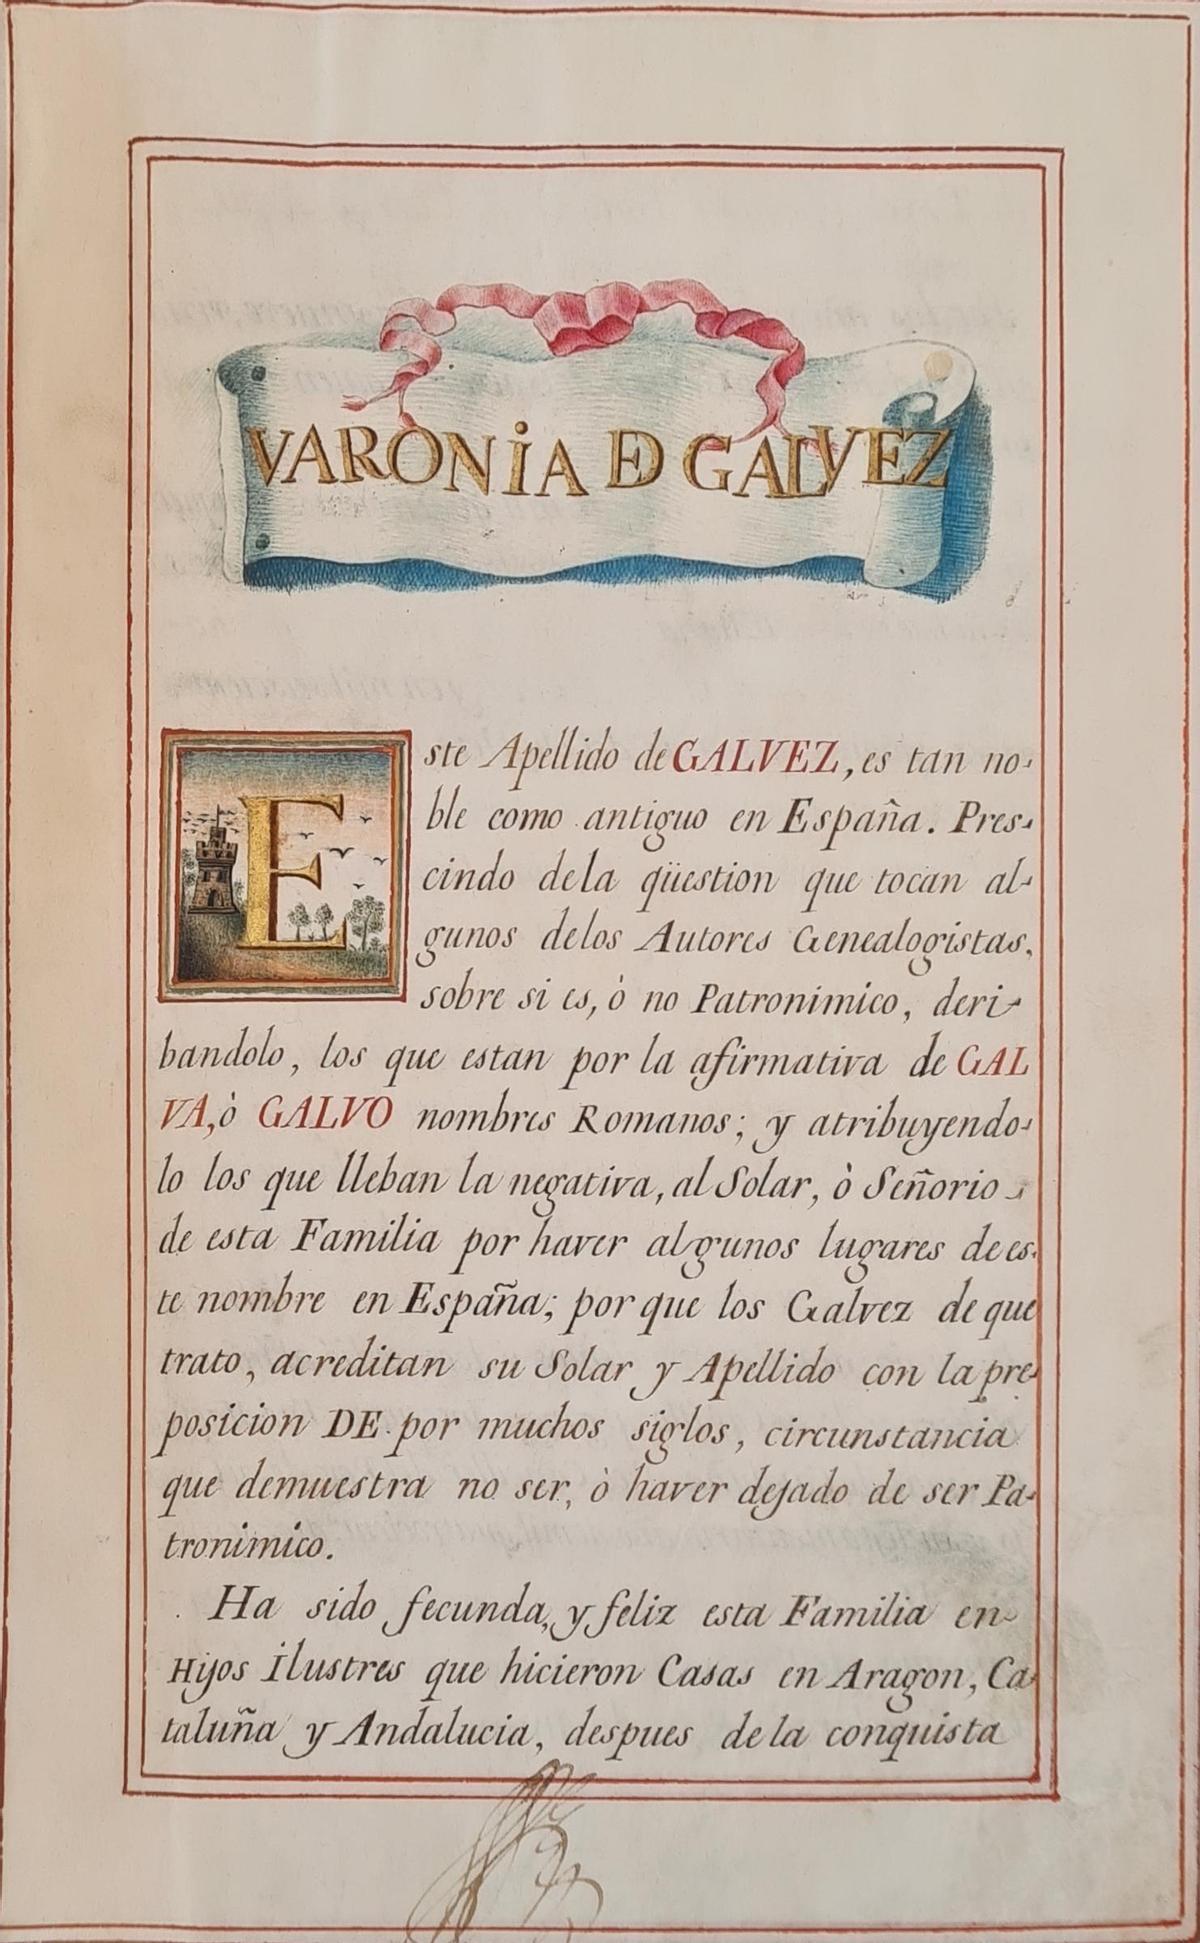 VARONiA DE GALVEZ
Este Apellido de GALVEZ, es tan no-
ble como antiguo en España. Pres-
cindo dela qüestion que tocan al-
gunos delos Autores Genealogistas,
sobre si es, ò no Patronimico, deri-
bandolo, los que estan por la afirmativa de GAL
VA, ò GALVO nombres Romanos; y atribuyendo-
lo los que lleban la negativa, al Solar, ò Señorio
de esta Familia por haver algunos lugares de es-
te nombre en España; por que los Galvez de que
trato, acreditan su Solar y Apellido con la pre-
posicion DE por muchos siglos, circunstancia
que demuestra no ser, ò haver dejado de ser Pa-
tronimico.
Ha sido fecunda, y feliz esta Familia en
Hijos ilustres que hicieron Casas en Aragon, Ca-
taluña y Andalucia, despues de la conquista